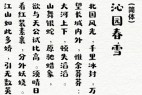 (简体)
沁园春雪
北国风光,千里冰封,万
望长城内外,惟余莽莽;
大河上下,顿失滔滔。
山舞银蛇,原驰蜡象,
欲与天公试比高。须晴日
看红装素裹,分外妖娆。
江山如此多娇,引无数英